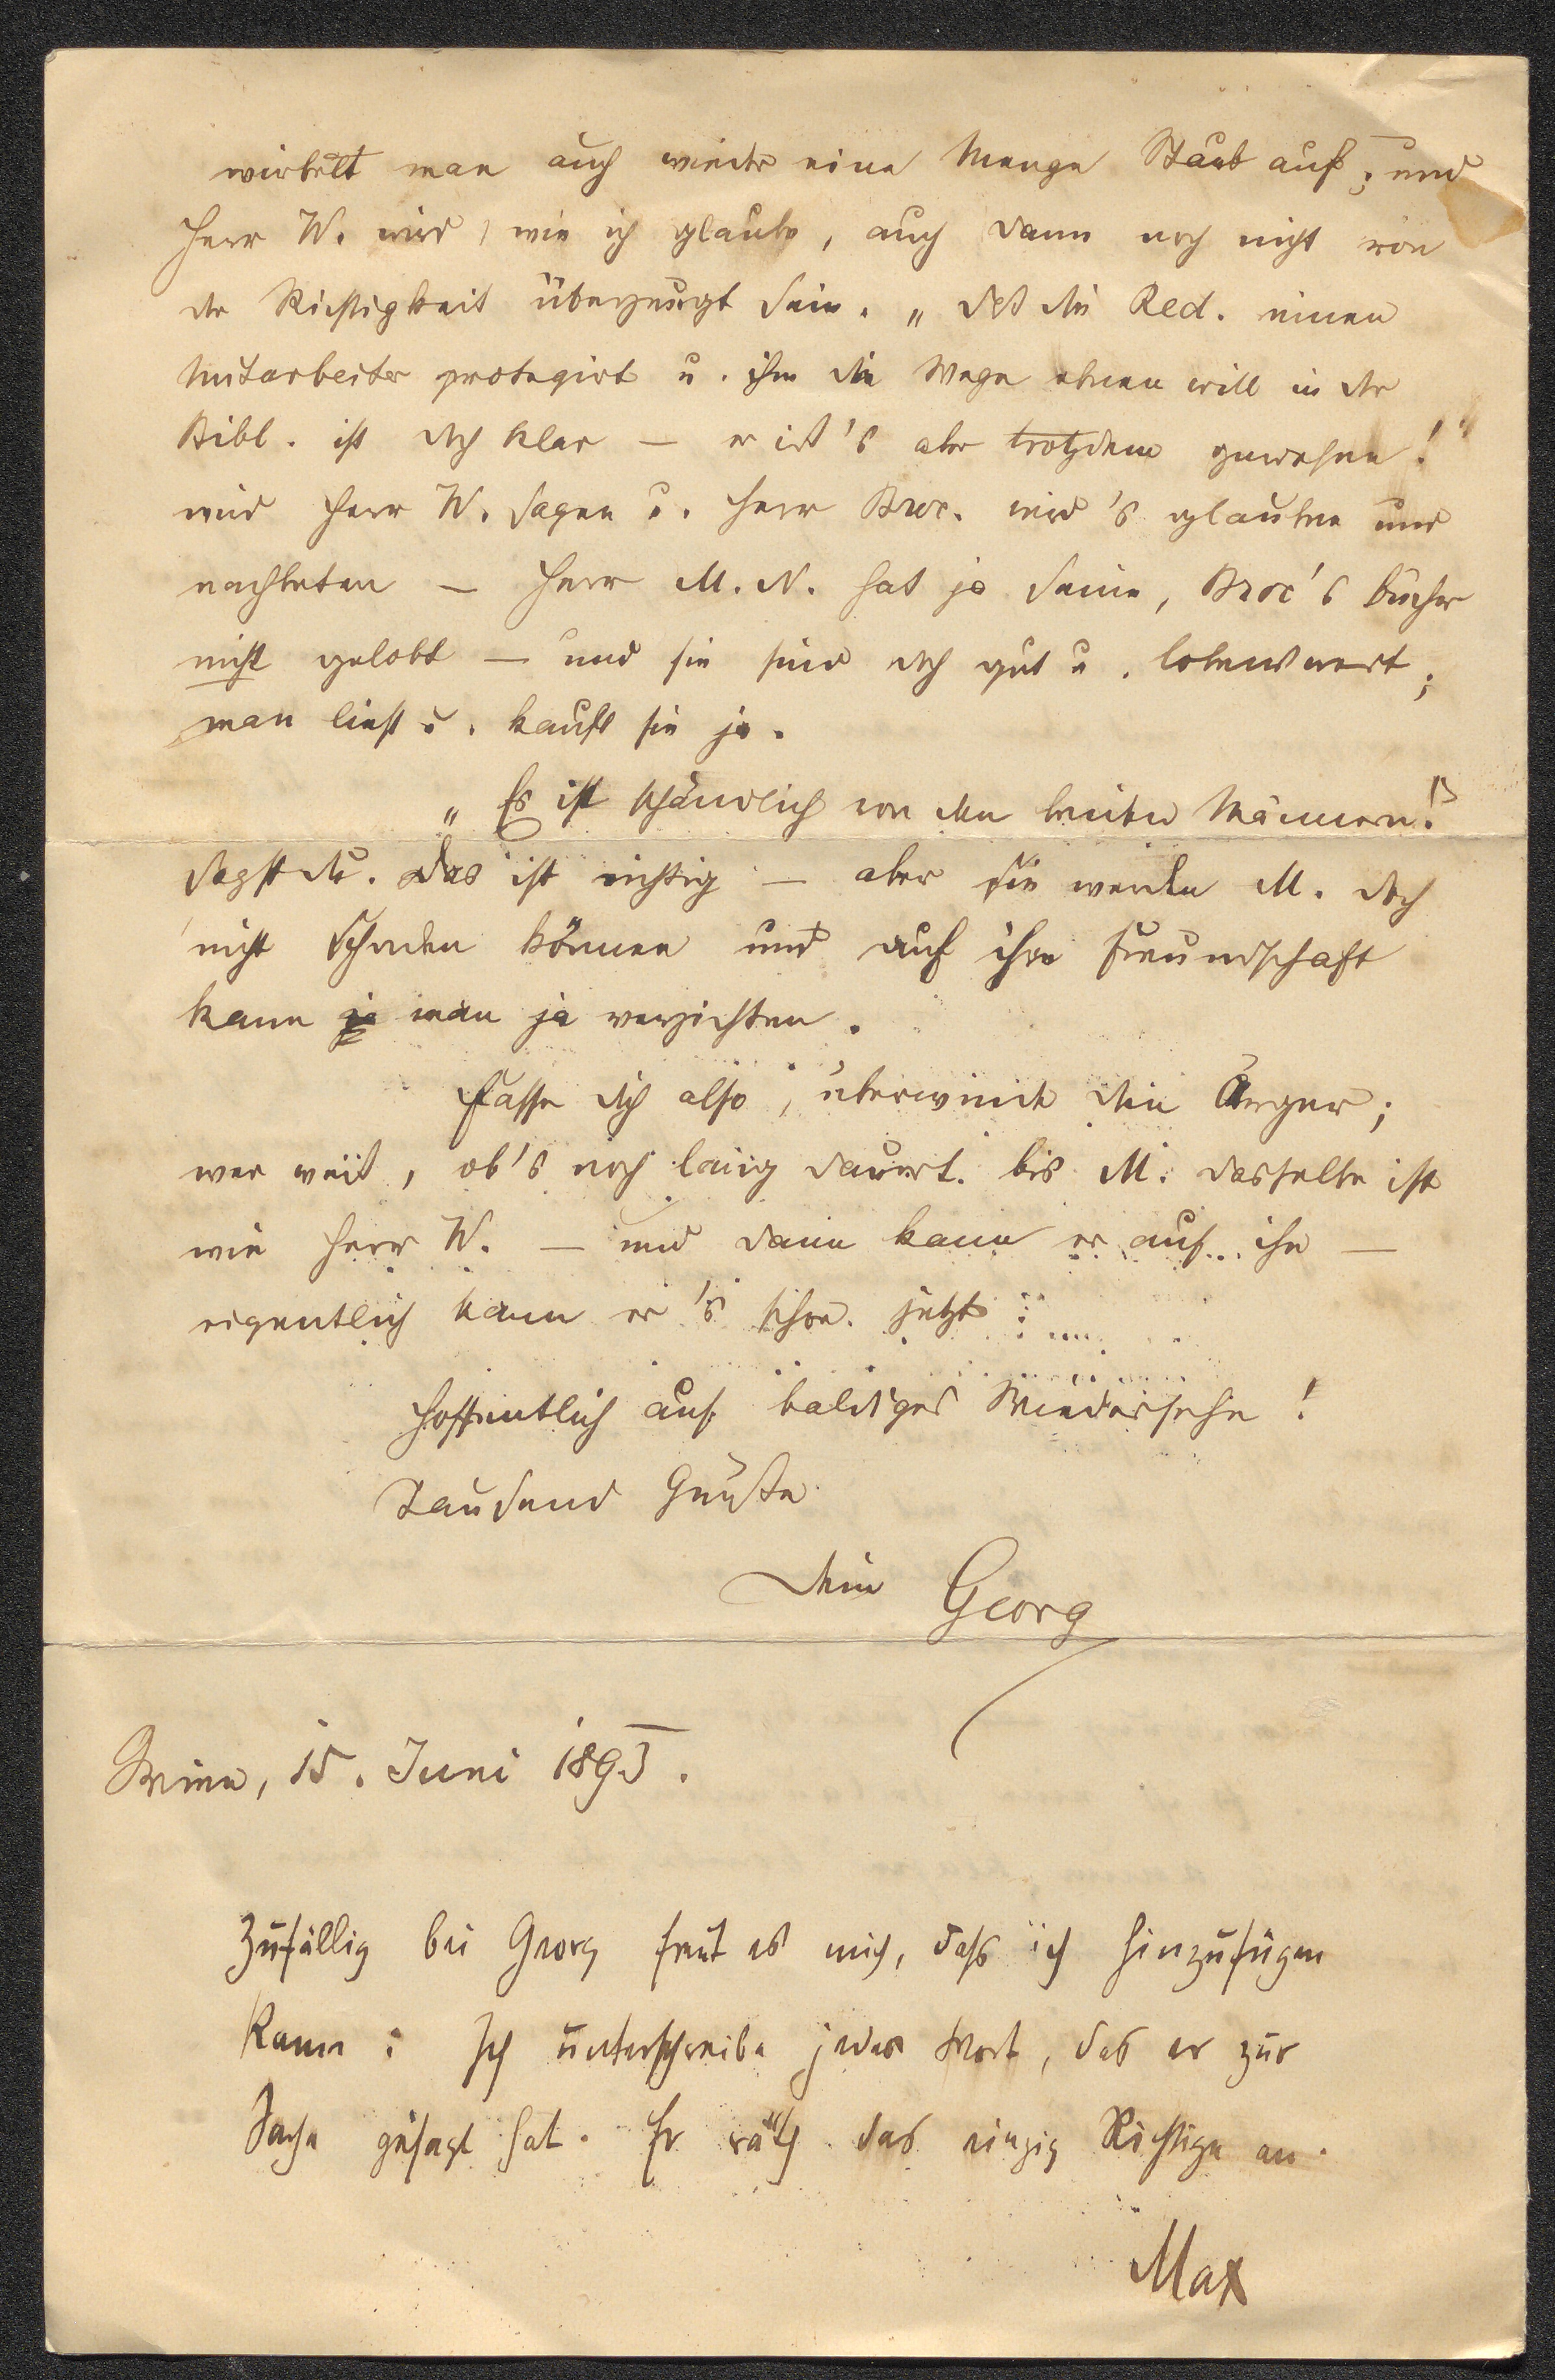 wirbelt man auch wieder eine Menge Staub auf; und
Herr W. wird, wie ich glaube, auch dann noch nicht von
der Richtigkeit überzeugt sein. „Daß die Red. einen
Mitarbeiter protegirt u. ihm die Wege ebnen will in der
Bibl. ist doch klar — er ist's aber trotzdem gewesen!"
wird Herr W. sagen u. Herr Broc. wird's glauben und
nachbeten — Herr M. N. hat ja seine, Broc's Bücher
nicht gelobt — und sie sind doch gut u. lobenswert;
man liest u. kauft sie ja.
„Es ist schändlich von den beiden Männern!"
sagst du. Das ist richtig — aber sie werden M. doch
nicht schaden können und auf ihre Freundschaft
kann man ja verzichten.
Fasse dich also, überwinde den Ärger;
wer weiß, ob's noch lang dauert. bis M. dasselbe ist
wie Herr W. — und dann kann er auf ihn —
eigentlich kann er's schon jetzt :....
Hoffentlich auf baldiges Wiedersehn!
Tausend Grüße
Dein Georg
Wien, 15. Juni 1893.
Zufällig bei Georg freut es mich, dass ich hinzufügen
kann: Ich unterschreibe jedes Wort, das er zur
Sache gesagt hat. Er räth das einzig Richtige an.
Max